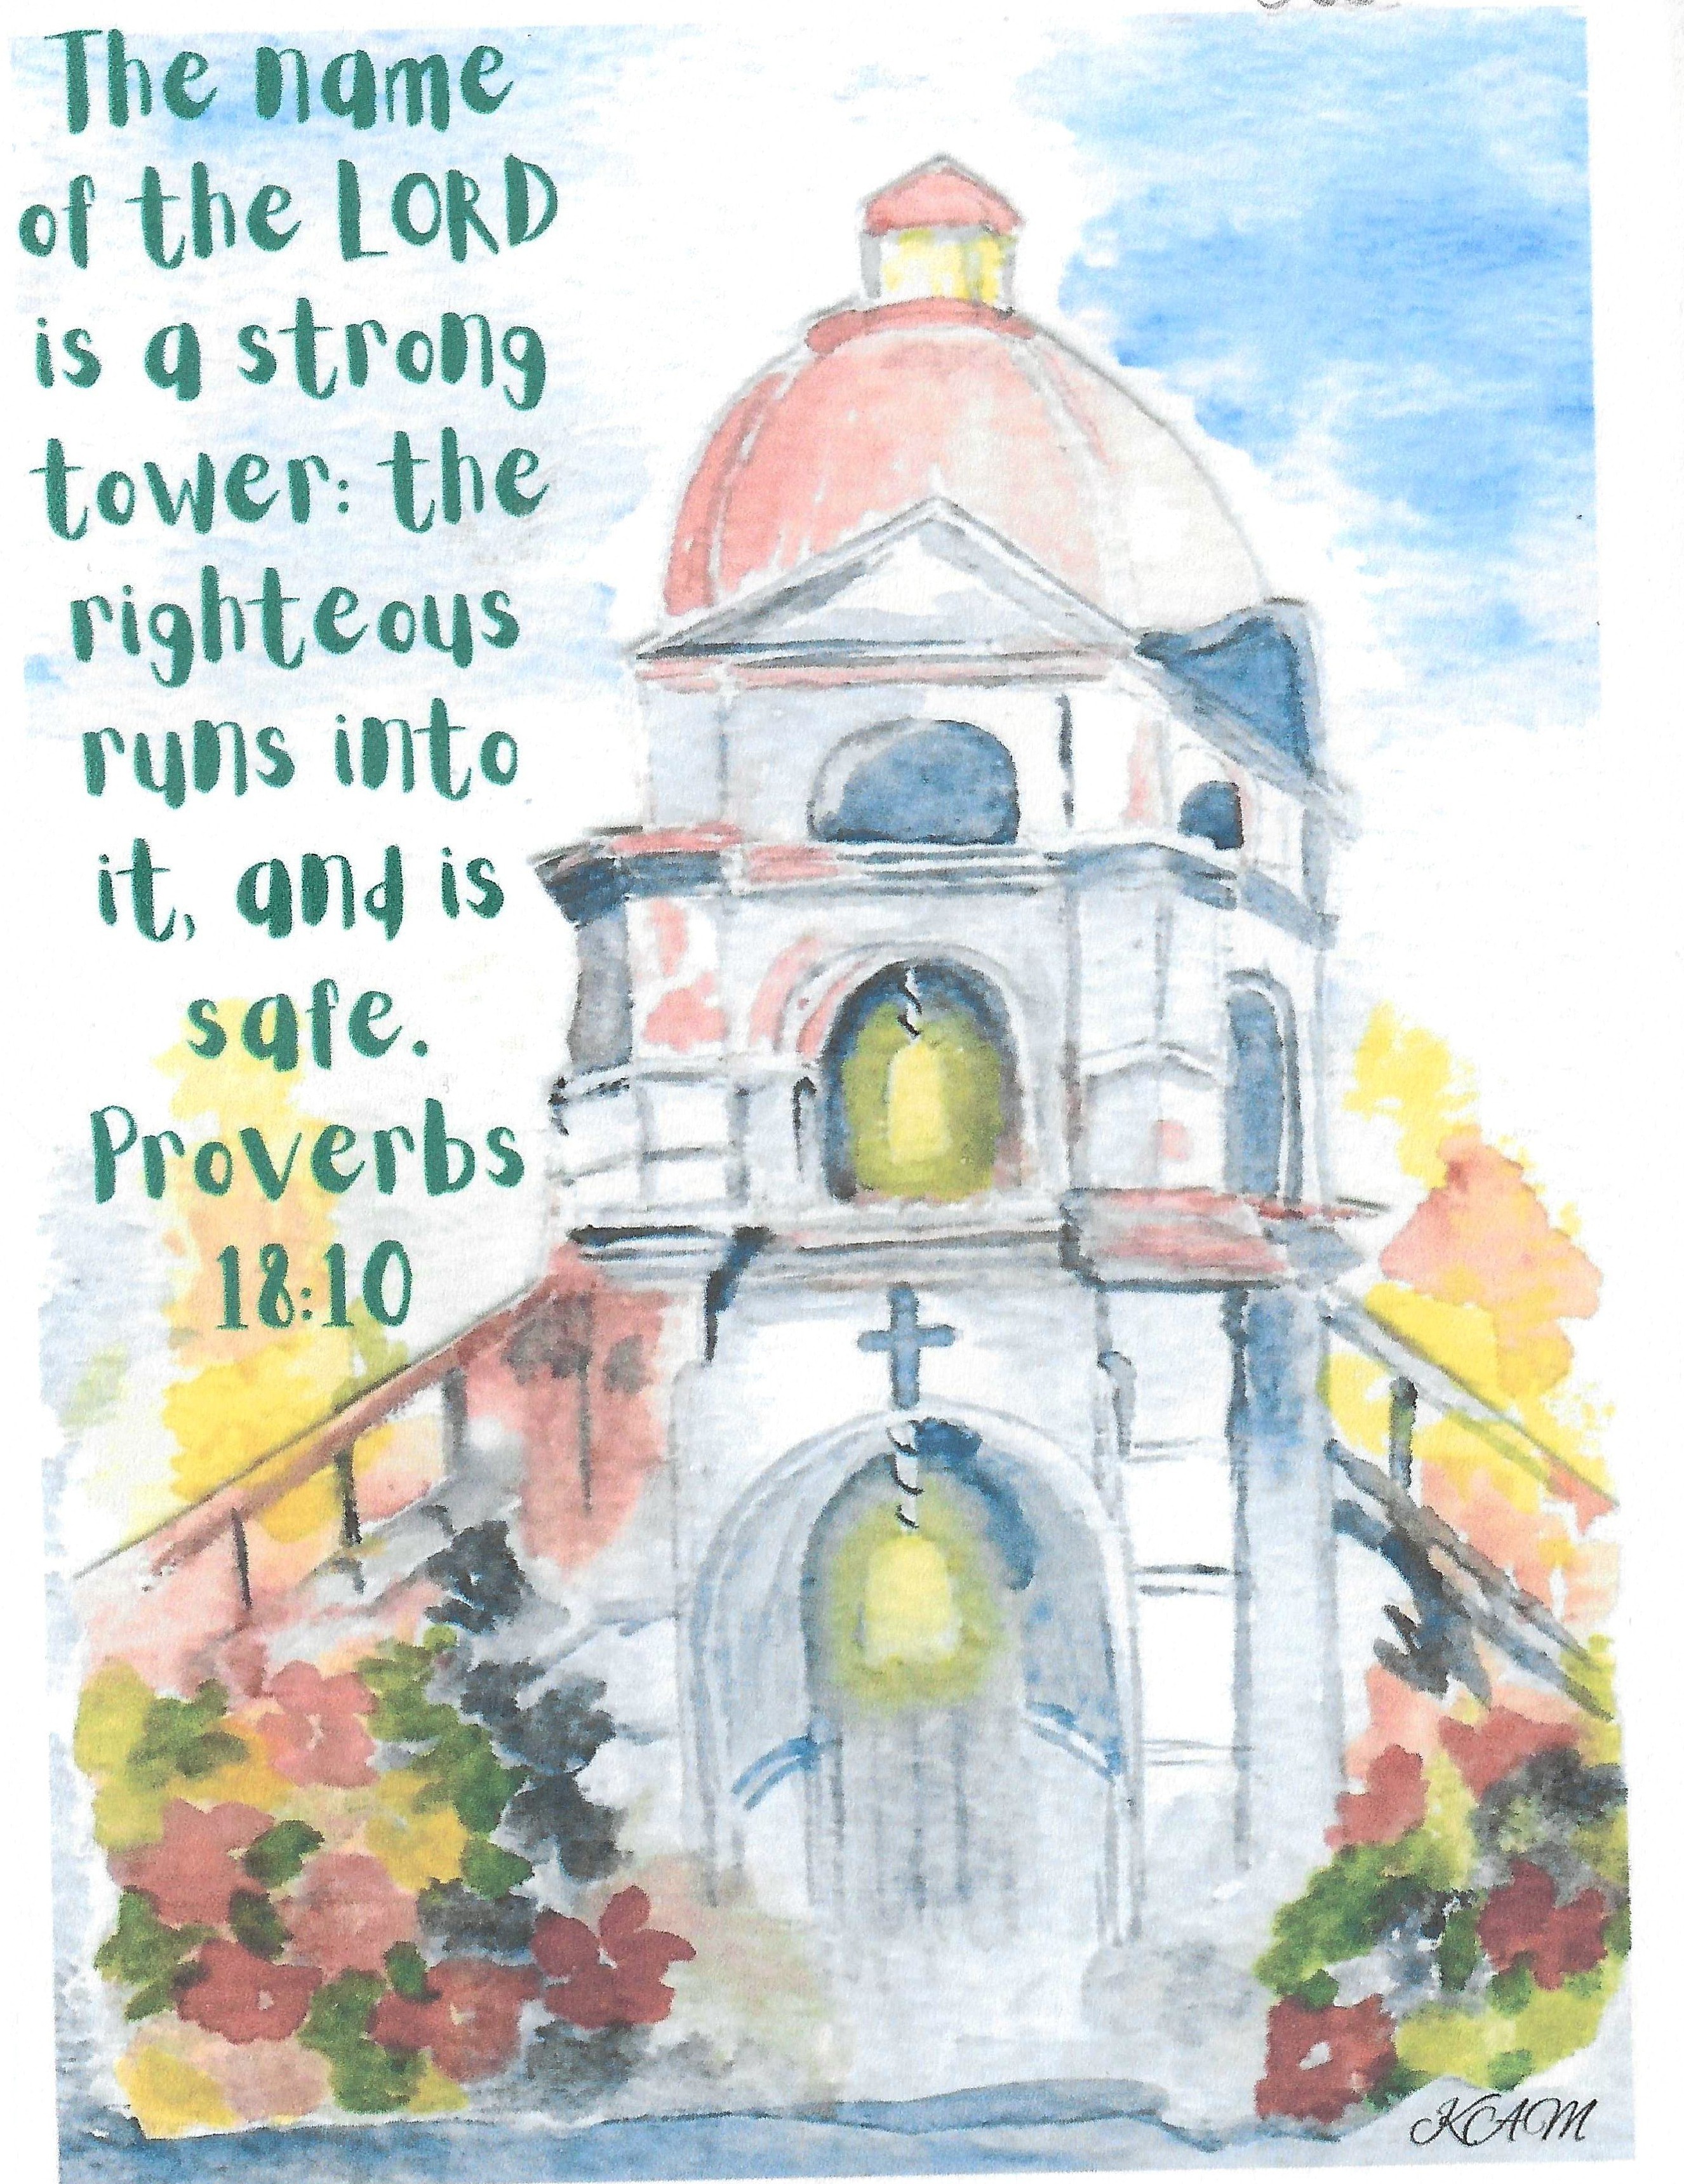 The name
of the LORD
is a strong
tower: the
righteous
runs into
it, and is
safe.
Proverbs
18:10
KAM